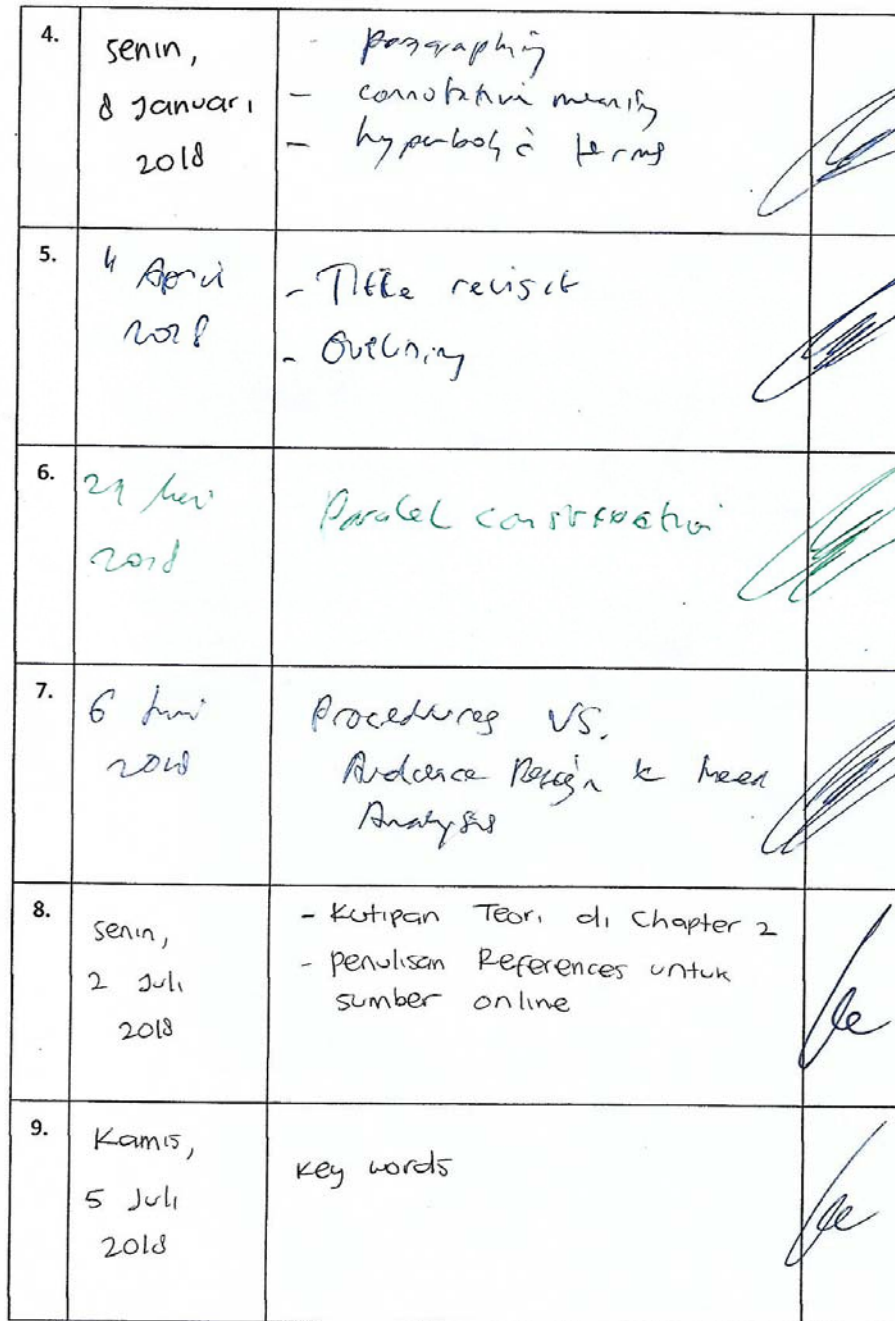 4.
Senin,
8 Januari
2018
- paragraphing
- connotative meaning
- hyperbolic terms
5.
4 April
2018
- Title revisit
- Outlining
6.
Mei
2018
Paralel construction
7.
6 Juni
2018
Procedures VS.
Audience Design & Need
Analysis
8.
Senin,
2 Juli
2018
- Kutipan Teori di Chapter 2
- penulisan References untuk
sumber online
9.
Kamis,
5 Juli
2018
Key words